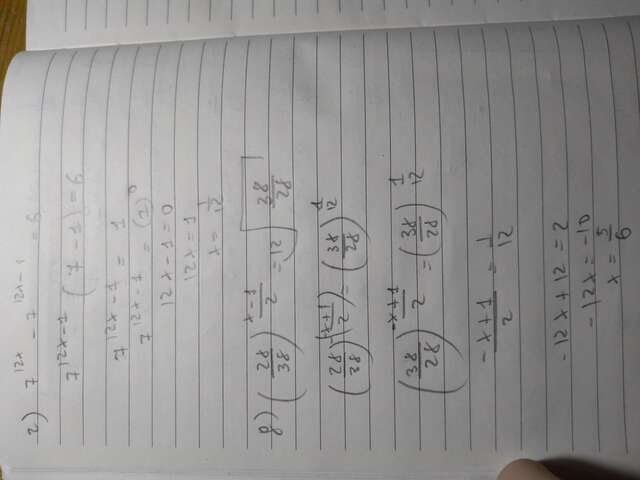 2) 7^{12x} - 7^{12x-1} = 6
7^{12x-1} (7 - 1) = 6
7^{12x-1} = 1
7^{12x-1} = (7)^0
12x - 1 = 0
12x = 1
x = \frac{1}{12}
g) (\frac{28}{38})^{\frac{x-1}{2}} = \sqrt[12]{\frac{38}{28}}
(\frac{28}{38})^{-(\frac{x+1}{2})} = (\frac{38}{28})^{\frac{1}{12}}
(\frac{38}{28})^{\frac{-x+1}{2}} = (\frac{38}{28})^{\frac{1}{12}}
\frac{-x+1}{2} = \frac{1}{12}
-12x + 12 = 2
-12x = -10
x = \frac{5}{6}